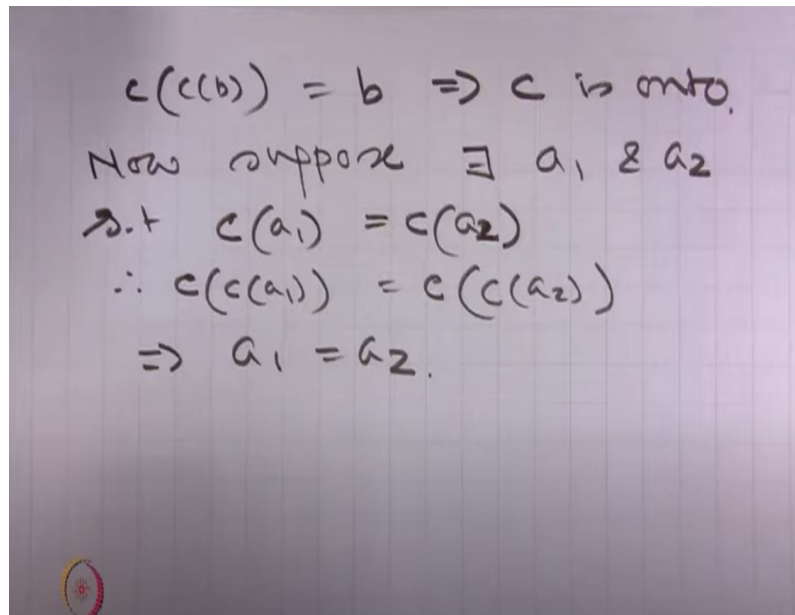 c(c(b)) = b => c is onto.
Now suppose ∃ a₁ & a₂
s.t c(a₁) = c(a₂)
∴ c(c(a₁)) = c(c(a₂))
=> a₁ = a₂.